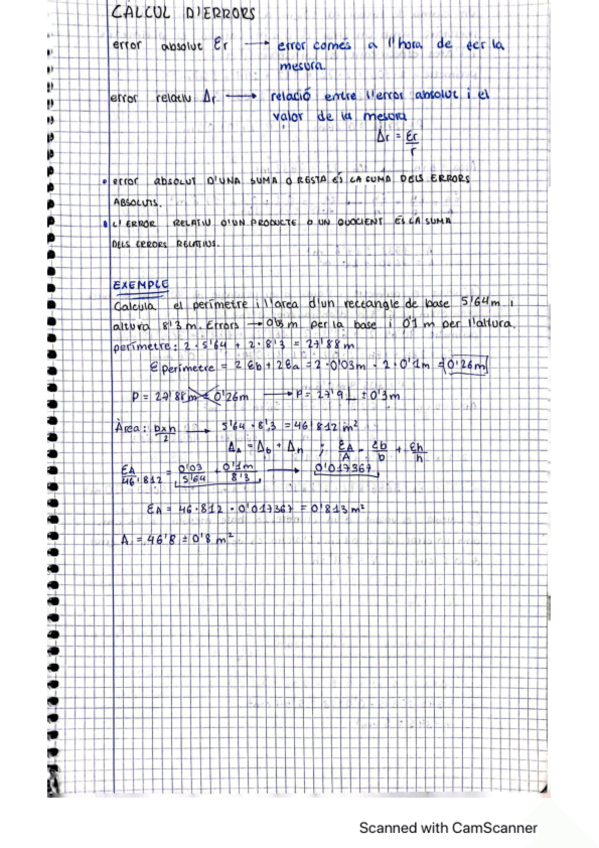 CÀLCUL D'ERRORS
error absolut Er → error comés a l'hora de fer la
mesura.
error relatiu Δr → relació entre l'error absolut i el
valor de la mesura
Δr = Er/r
• error absolut D'UNA SUMA O RESTA ÉS LA SUMA DELS ERRORS
ABSOLUTS.
• L'ERROR RELATIU D'UN PRODUCTE O UN QUOCIENT ÉS LA SUMA
DELS ERRORS RELATIUS.
EXEMPLE
Calcula el perímetre i l'area d'un rectangle de base 5'64m i
altura 8'3 m. Errors → m per la base i 0'1 m per l'altura.
perímetre: 2·5'64 + 2·8'3 = 27'88 m
Eperímetre = 2Eb + 2Ea = 2·0'03m · 2·0'1m = 0'26m
P = 27'88m 0'26m → P = 27'9 ± 0'3m
Àrea: b×h/2 → 5'64 · 8'3 = 46'812 m²
ΔA = Δb + Δh ; EA/A = Eb/b + Eh/h
EA/46'812 = 0'03/5'64 + 0'1m/8'3 → 0'017367
EA = 46·812 · 0'017367 = 0'813 m²
A = 46'8 ± 0'8 m²
Scanned with CamScanner